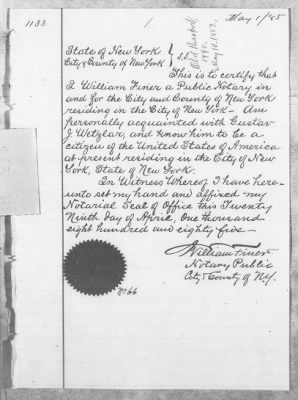 1133
May 1/85
State of New York
City & County of New York } S.S.
Old Passport,
May 18, 1882.
This is to certify that
I William Finer a Public Notary in
and for the City and County of New York
residing in the City of New York - Am
personally acquainted with Gustav
J. Wetzlar, and know him to be a
citizen of the United States of America
at present residing in the City of New
York, State of New York.
In Witness Whereof I have here-
unto set my hand and affixed my
Notarial Seal of Office this Twenty
Ninth Day of April, One thousand
eight hundred and eighty five -
William Finer
Notary Public
City & County of N.Y.
No 66